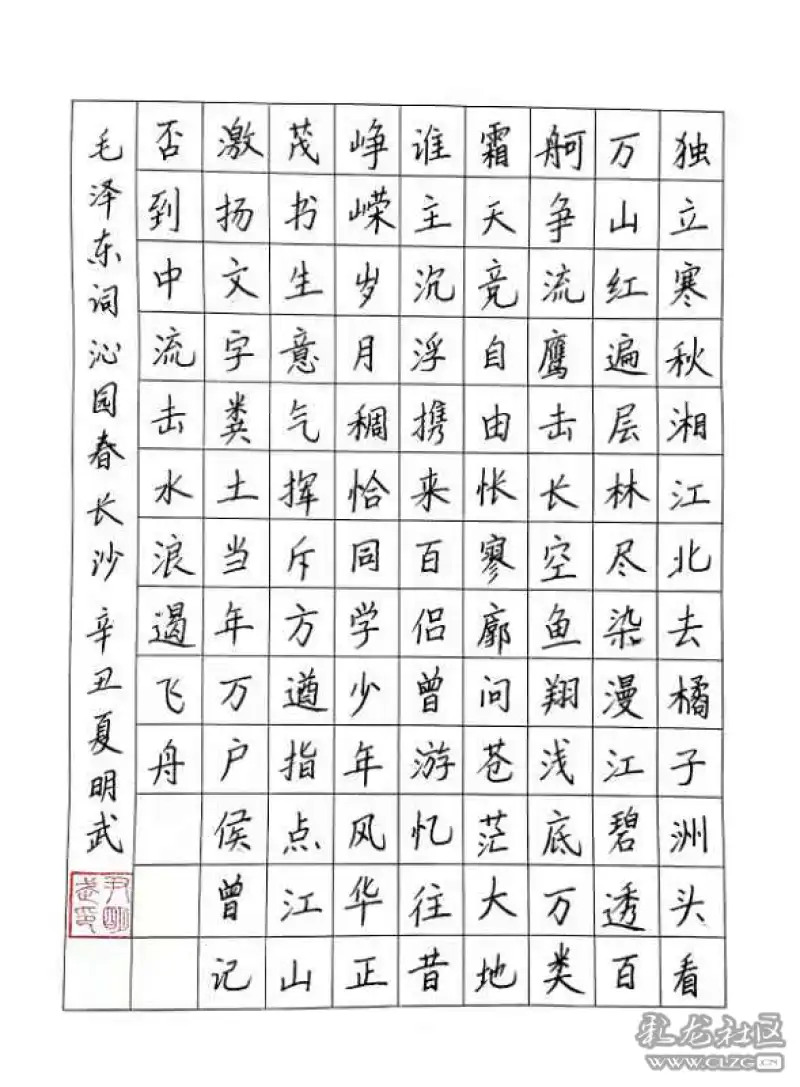 独立寒秋湘江北去橘子洲头看
万山红遍层林尽染漫江碧透百
舸争流鹰击长空鱼翔浅底万类
霜天竞自由怅寥廓问苍茫大地
谁主沉浮携来百侣曾游忆往昔
峥嵘岁月稠恰同学少年风华正
茂书生意气挥斥方遒指点江山
激扬文字粪土当年万户侯曾记
否到中流击水浪遏飞舟
毛泽东词沁园春长沙 辛丑夏明武
尹明武印
彩龙社区
WWW.CLZG.CN